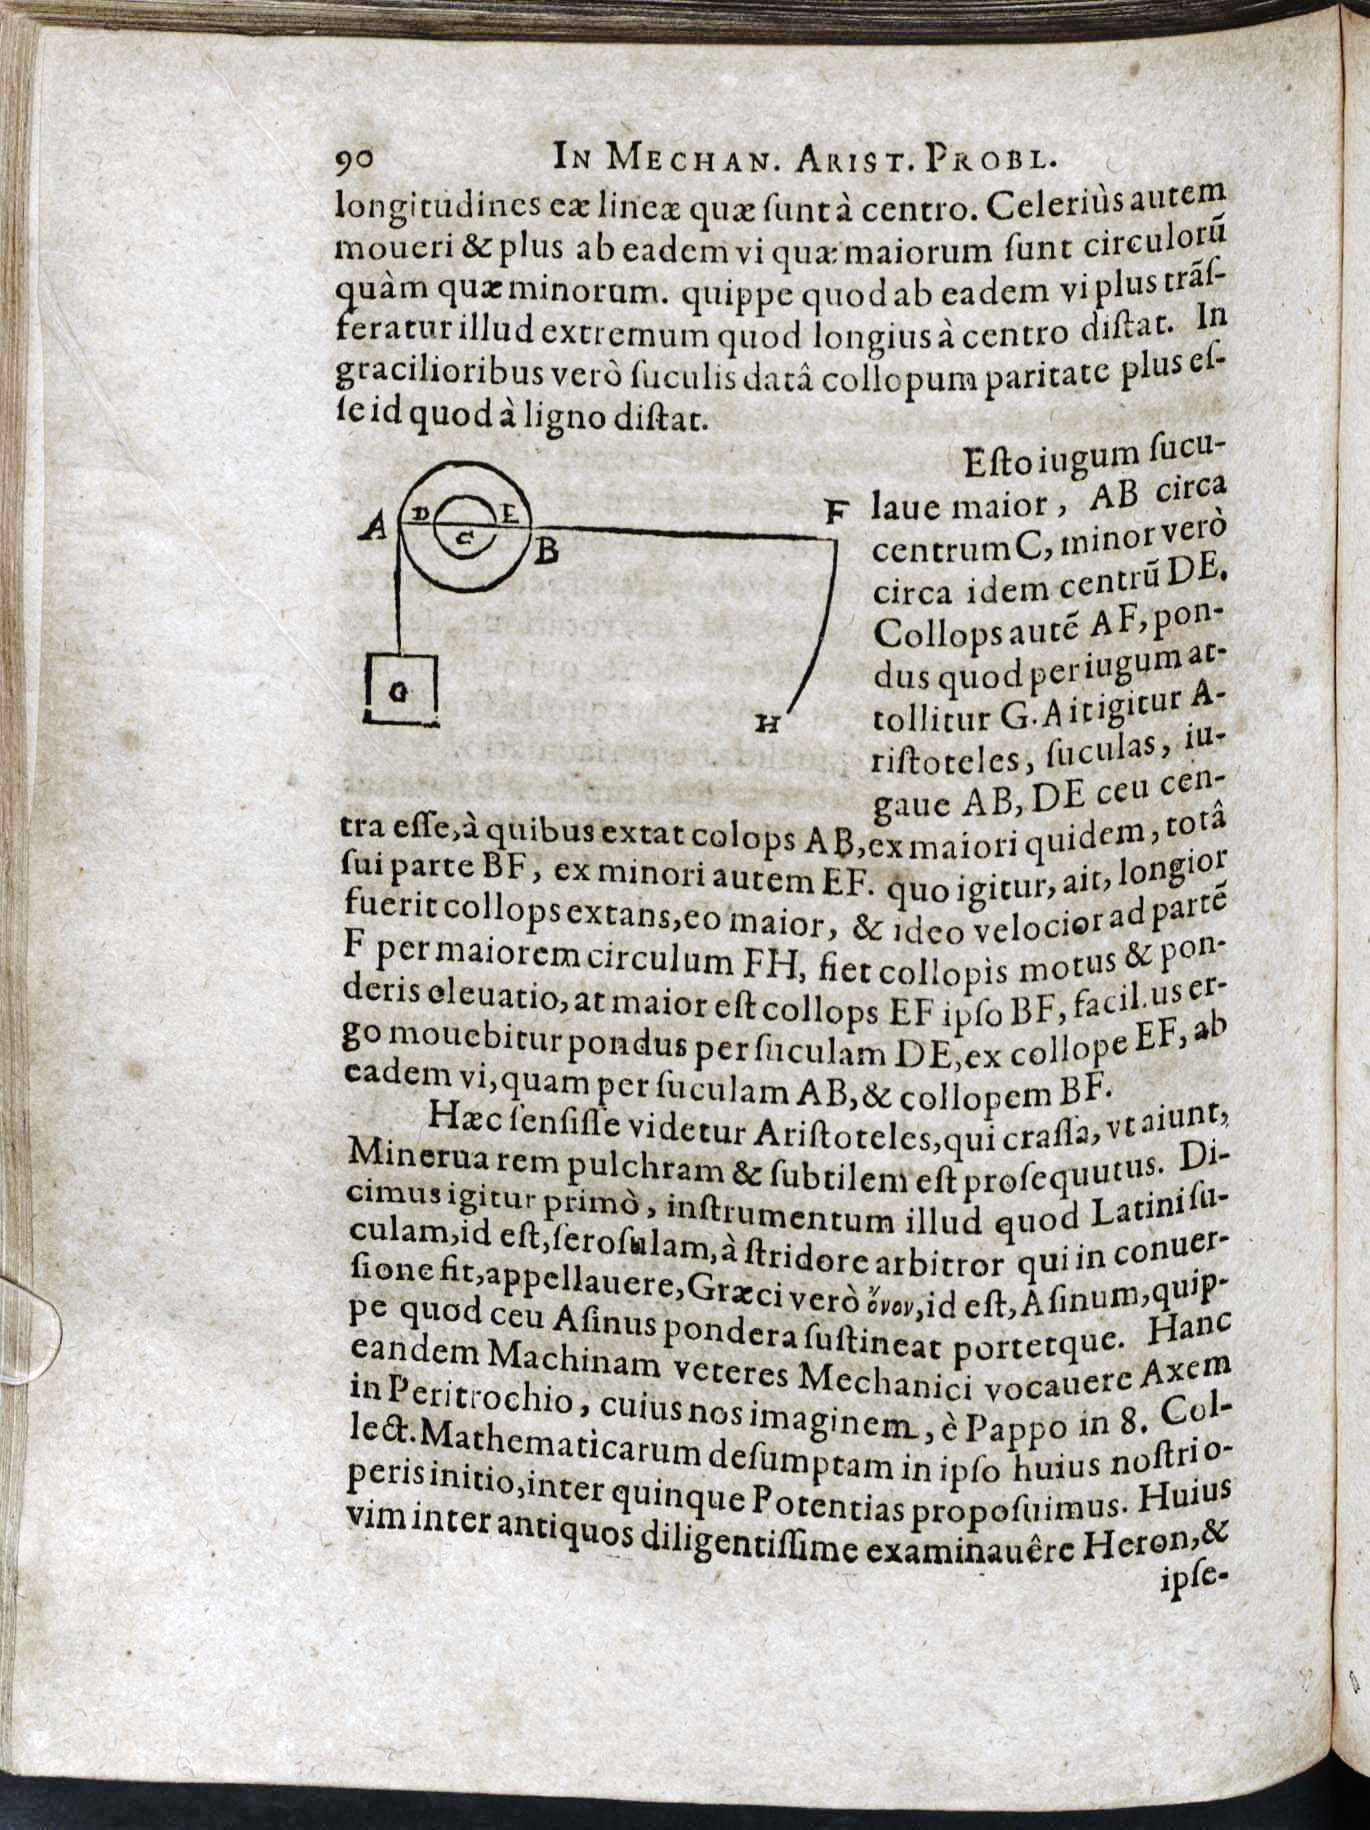 90 IN MECHAN. ARIST. PROBL.
longitudines eæ lineæ quæ ſunt à centro. Celeriùs autem
moueri & plus ab eadem vi quæ maiorum ſunt circulorũ
quàm quæ minorum. quippe quod ab eadem vi plus trãſ-
feratur illud extremum quod longius à centro diſtat. In
gracilioribus verò ſuculis datâ collopum paritate plus eſ-
ſe id quod à ligno diſtat.
Eſto iugum ſucu-
laue maior, AB circa
centrum C, minor verò
circa idem centrũ DE.
Collops autẽ AF, pon-
dus quod per iugum at-
tollitur G. Ait igitur A-
riſtoteles, ſuculas, iu-
gaue AB, DE ceu cen-
A D E C B F G H
tra eſſe, à quibus extat colops AB, ex maiori quidem, totâ
ſui parte BF, ex minori autem EF. quo igitur, ait, longior
fuerit collops extans, eo maior, & ideo velocior ad partẽ
F per maiorem circulum FH, fiet collopis motus & pon-
deris eleuatio, at maior eſt collops EF ipſo BF, facilius er-
go mouebitur pondus per ſuculam DE, ex collope EF, ab
eadem vi, quam per ſuculam AB, & collopem BF.
Hæc ſenſiſſe videtur Ariſtoteles, qui craſſa, vt aiunt,
Minerua rem pulchram & ſubtilem eſt proſequutus. Di-
cimus igitur primò, inſtrumentum illud quod Latini ſu-
culam, id eſt, ſeroſulam, à ſtridore arbitror qui in conuer-
ſione fit, appellauere, Græci verò ὄνον, id eſt, Aſinum, quip-
pe quod ceu Aſinus pondera ſuſtineat portetque. Hanc
eandem Machinam veteres Mechanici vocauere Axem
in Peritrochio, cuius nos imaginem, è Pappo in 8. Col-
lect. Mathematicarum deſumptam in ipſo huius noſtri o-
peris initio, inter quinque Potentias propoſuimus. Huius
vim inter antiquos diligentiſſime examinauêre Heron, &
ipſe-